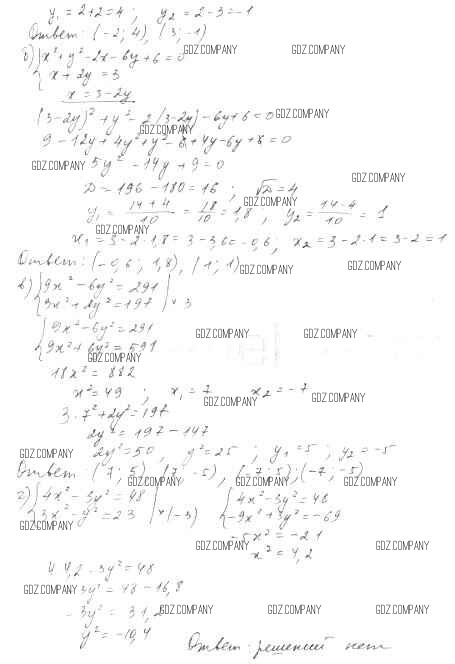 y₁ = 2+2=4; y₂ = 2-3=-1
Ответ: (-2; 4), (3; -1)
б) { x² + y² - 2x - 6y + 6 = 0
GDZ.COMPANY GDZ.COMPANY
x + 2y = 3
x = 3-2y
(3-2y)² + y² - 2(3-2y) - 6y + 6 = 0 GDZ.COMPANY
GDZ.COMPANY
9 - 12y + 4y² + y² - 6 + 4y - 6y + 6 = 0
GDZ.COMPANY 5y² - 14y + 9 = 0
GDZ.COMPANY
D = 196 - 180 = 16; √D = 4
GDZ.COMPANY
y₁ = (14+4)/10 = 18/10 = 1,8, y₂ = (14-4)/10 = 1
GDZ.COMPANY
x₁ = 3 - 2·1,8 = 3 - 3,6 = -0,6, x₂ = 3-2·1 = 3-2 = 1
Ответ: (-0,6; 1,8), (1; 1) GDZ.COMPANY GDZ.COMPANY
в) { 9x² - 6y² = 291
3x² + 2y² = 197 | × 3
{ 9x² - 6y² = 291
GDZ.COMPANY GDZ.COMPANY
9x² + 6y² = 591
GDZ.COMPANY
18x² = 882
x² = 49; x₁ = 7 x₂ = -7
GDZ.COMPANY GDZ.COMPANY
3·7² + 2y² = 197
2y² = 197 - 147
GDZ.COMPANY 2y² = 50, y² = 25; y₁ = 5; y₂ = -5
Ответ (7; 5), (7; -5), (-7; 5); (-7; -5)
GDZ.COMPANY GDZ.COMPANY GDZ.COMPANY
г) { 4x² - 3y² = 48 { 4x² - 3y² = 48
3x² - y² = 23 | × (-3) -9x² + 3y² = -69
GDZ.COMPANY
-5x² = -21
GDZ.COMPANY GDZ.COMPANY
x² = 4,2
4·4,2 - 3y² = 48
GDZ.COMPANY 3y² = 48 - 16,8
-3y² = 31,2
GDZ.COMPANY GDZ.COMPANY GDZ.COMPANY
y² = -10,4
Ответ: решений нет